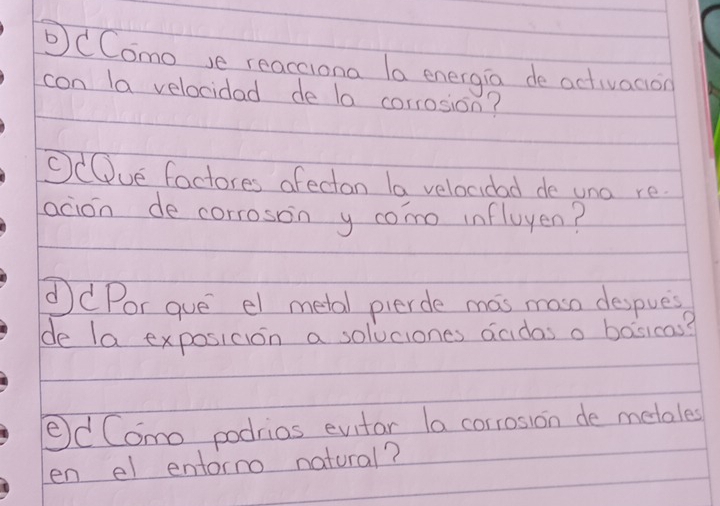 b) ¿Cómo se reacciona la energía de activación
con la velocidad de la corrosión?
c) ¿Qué factores afectan la velocidad de una re-
ación de corrosón y cómo influyen?
d) ¿Por qué el metal pierde más masa después
de la exposición a soluciones ácidas o básicas?
e) ¿Cómo podrias evitar la corrosión de metales
en el entorno natural?